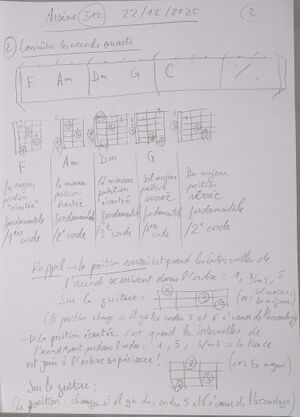 Arsène 312 22/12/2025 2
2 Connaître les accords ouverts
F Am Dm G C %
F Am Dm G
Fa majeur La mineur Ré mineur Sol majeur Do majeur
position position position position position
"écartée" écartée écartée serrée serrée
fondamentale fondamentale fondamentale fondamentale fondamentale
1ère corde 2° corde 3° corde 1ère corde 2° corde
Rappel → la position serrée est quand les intervalles de
l'accord se suivent dans l'ordre : 1, 3/m3, 5
Sur la guitare = (ex: Sol majeur, Do majeur)
(la position change s'il y a les cordes 5 et 6 à cause de l'accordage)
→ La position écartée c'est quand les intervalles de
l'accord sont pas dans l'ordre = 1, 5, 3/m3 → la tierce
est jouée à l'octave supérieure!
Sur la guitare: (ex: Fa majeur)
(la position change s'il y a des cordes 5 et 6 à cause de l'accordage)